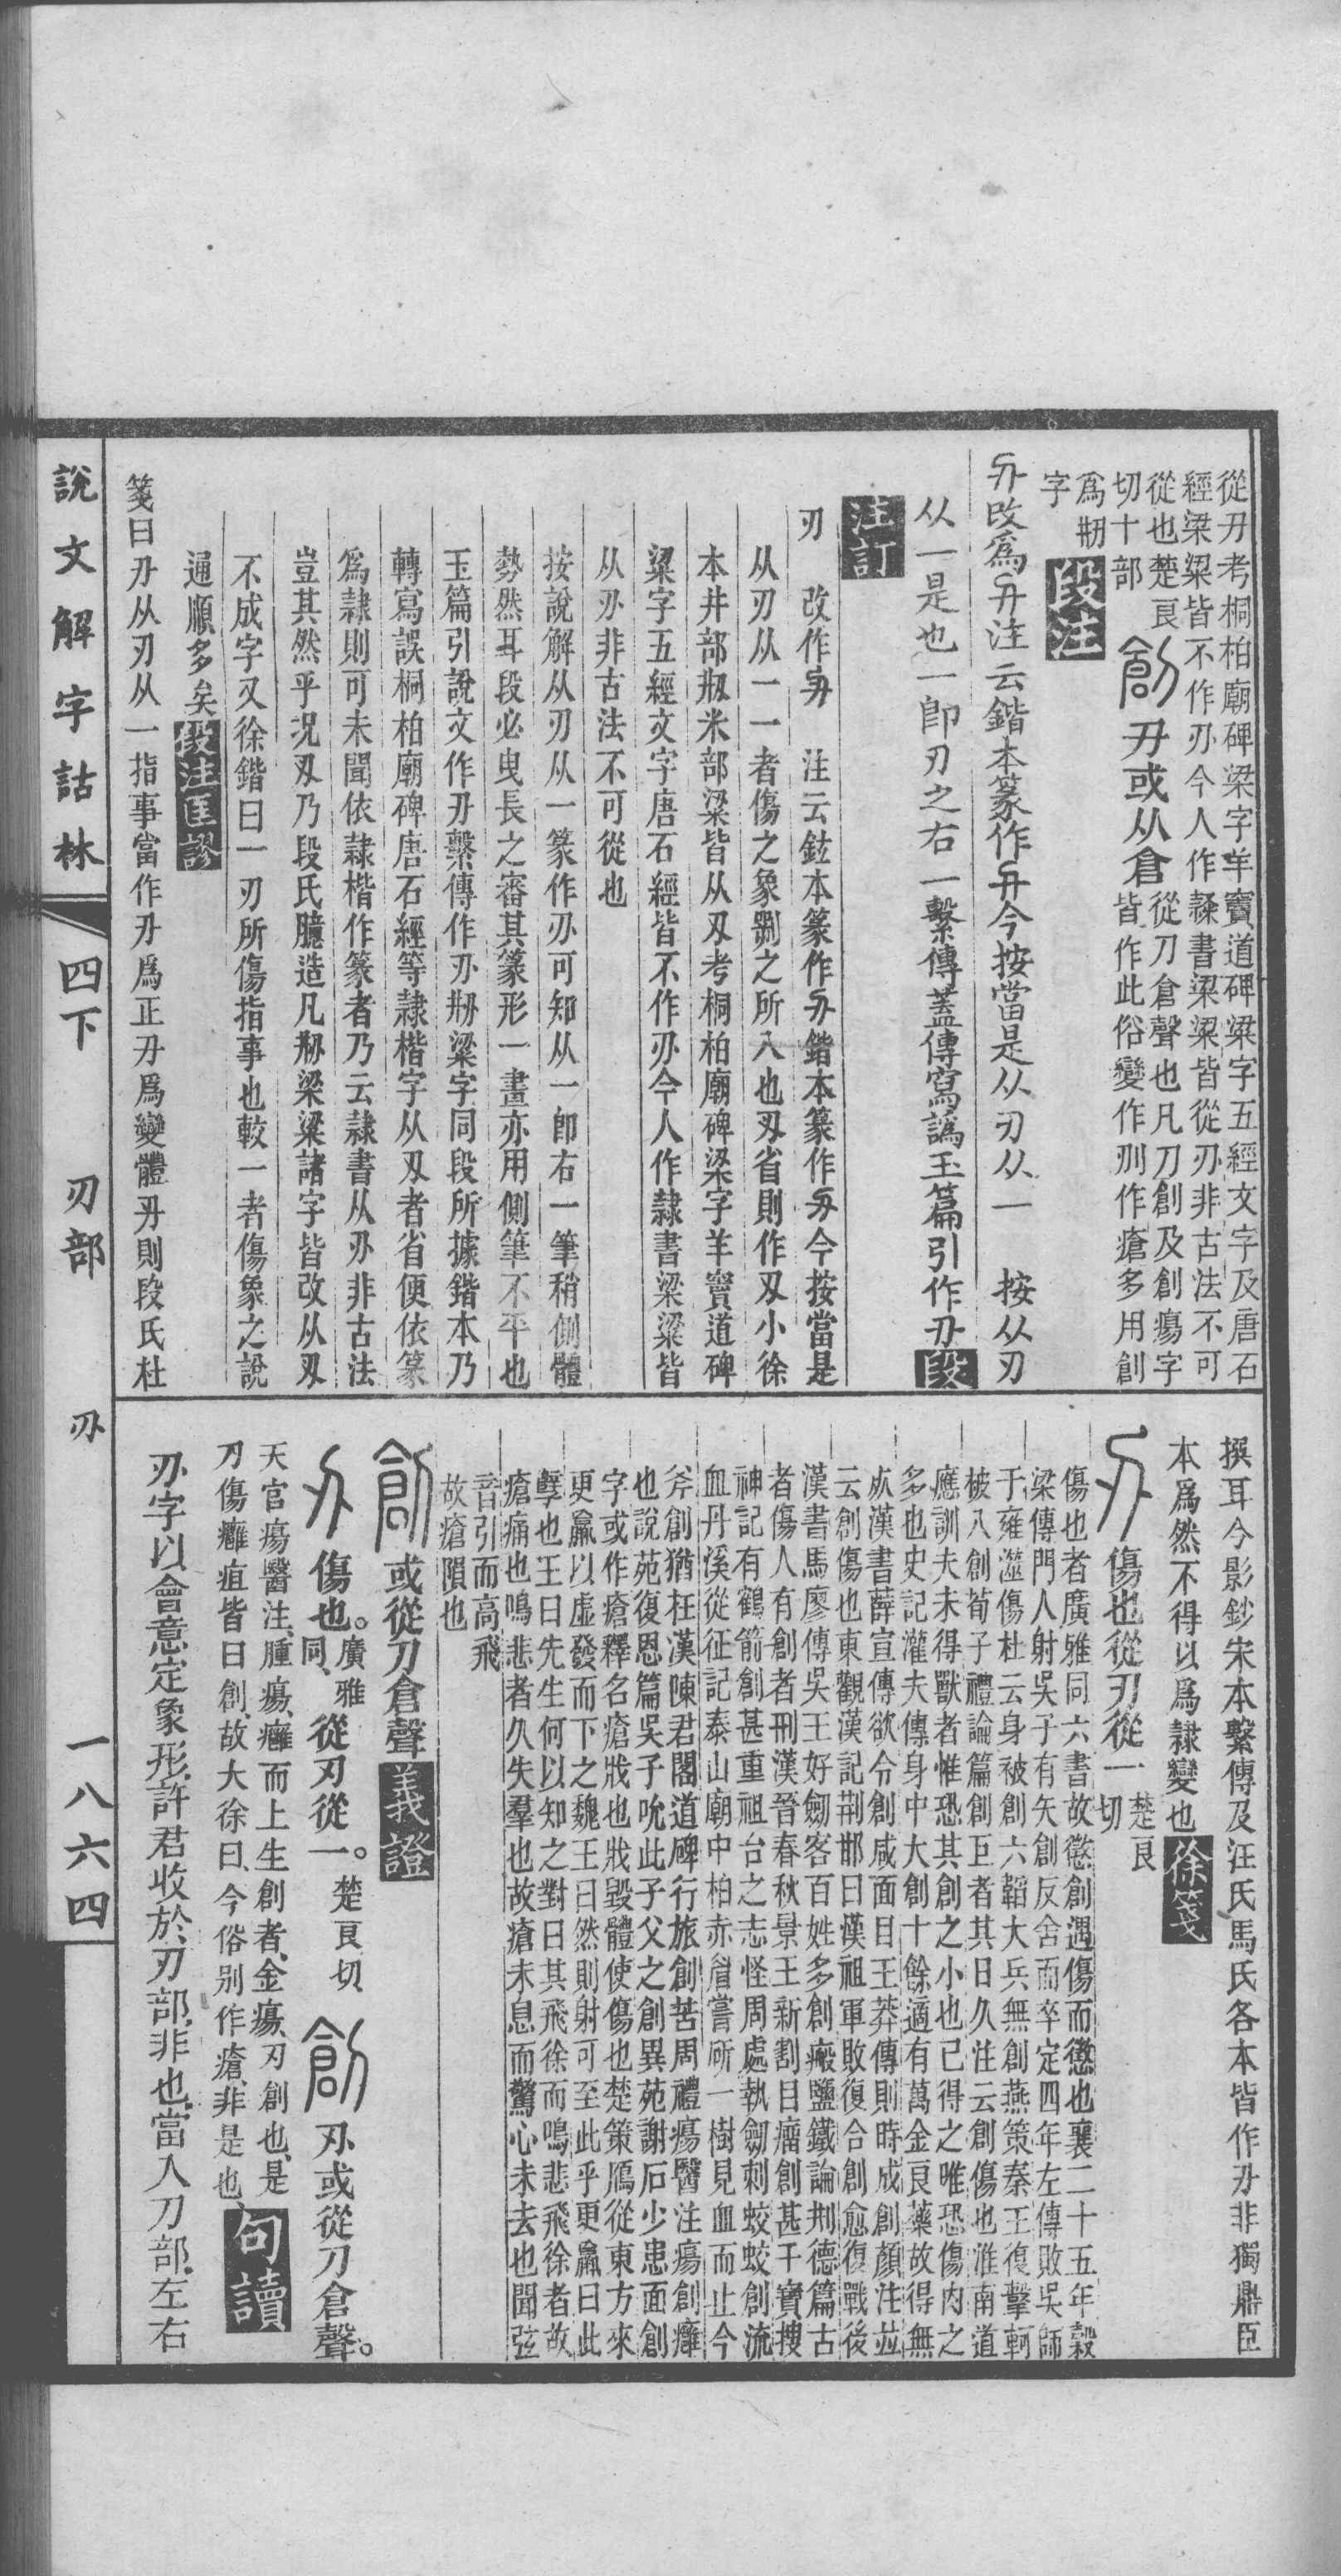 從刅考桐柏廟碑梁字羊竇道碑梁字五經文字及唐石
經梁粱皆不作刅今人作隸書梁粱皆從刅非古法不可
從也楚良
切十部
創刅或从倉
從刀倉聲也凡刀創及創瘍字
皆作此俗變作刱作瘡多用創
爲刱
字
段注
刅改爲刅注云鍇本篆作刅今按當是从刃从一　按从刃
从一是也一卽刃之右一繫傳蓋傳寫譌玉篇引作刅段
注訂
刅　改作刅　注云鉉本篆作刅鍇本篆作刅今按當是
从刃从一一者傷之象劉之所入也刅省則作刅小徐
本井部刱米部粱皆从刅考桐柏廟碑梁字羊竇道碑
梁字五經文字唐石經皆不作刅今人作隸書梁粱皆
从刅非古法不可從也
按說解从刃从一篆作刅可知从一卽右一筆稍側體
勢然耳段必曳長之審其篆形一畫亦用側筆不平也
玉篇引說文作刅繫傳作刅刱梁字同段所據鍇本乃
轉寫誤桐柏廟碑唐石經等隸楷字从刅者省便依篆
爲隸則可未聞依隸楷作篆者乃云隸書从刅非古法
豈其然乎況刅乃段氏臆造凡刱梁粱諸字皆改从刅
不成字又徐鍇曰一刃所傷指事也較一者傷象之說
通順多矣段注匡謬
箋曰刅从刃从一指事當作刅爲正刅爲變體刅則段氏杜
撰耳今影鈔宋本繫傳及汪氏馬氏各本皆作刅非獨鼎臣
本爲然不得以爲隸變也徐箋
刅傷也從刃從一
楚良
切
傷也者廣雅同六書故懲創遇傷而懲也襄二十五年穀
梁傳門人射吳子有矢創反舍而卒定四年左傳敗吳師
于雍澨傷杜云身被創六韜大兵無創燕策秦王復擊軻
被八創荀子禮論篇創巨者其日久注云創傷也淮南道
應訓夫未得獸者惟恐其創之小也已得之唯恐傷肉之
多也史記灌夫傳身中大創十餘適有萬金良藥故得無
死漢書薛宣傳欲令創咸面目王莽傳則時成創顏注竝
云創傷也東觀漢記荆邯曰漢祖軍敗復合創愈復戰後
漢書馬廖傳吳王好劒客百姓多創瘢鹽鐵論刑德篇古
者傷人有創者刑漢晉春秋景王新割目瘤創甚干寶搜
神記有鶴箭創甚重祖台之志怪周處執劒刺蛟蛟創流
血丹溪從征記泰山廟中柏赤眉嘗斫一樹見血而止今
斧創猶枉漢陳君閣道碑行旅創苦周禮瘍醫注瘍創癰
也說苑復恩篇吳子吮此子父之創異苑謝石少患面創
字或作瘡釋名瘡戕也戕毀體使傷也楚策鴈從東方來
更羸以虛發而下之魏王曰然則射可至此乎更羸曰此
孽也王曰先生何以知之對曰其飛徐而鳴悲飛徐者故
瘡痛也鳴悲者久失羣也故瘡未息而驚心未去也聞弦
音引而高飛
故瘡隕也
創或從刀倉聲義證
刅傷也。
廣雅
同、
從刃從一。
楚良切
創刅或從刀倉聲。
天官瘍醫注、腫瘍、癰而上生創者、金瘍、刃創也、是
刀傷癰疽皆曰創、故大徐曰、今俗别作瘡、非是也、句讀
刅字以會意定象形、許君收於刃部、非也、當入刀部、左右
說文解字詁林　四下　刃部　刅　一八六四